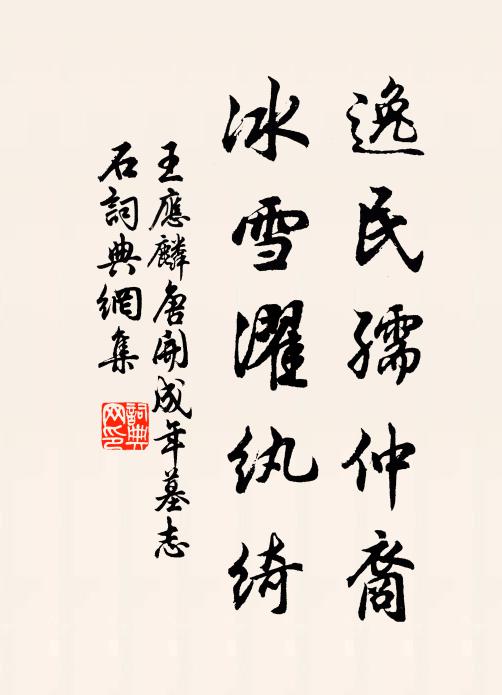 逸民孺仲裔
冰雪濯纨绮
王應麟唐開成年墓志
石詞典網集
詞典网印